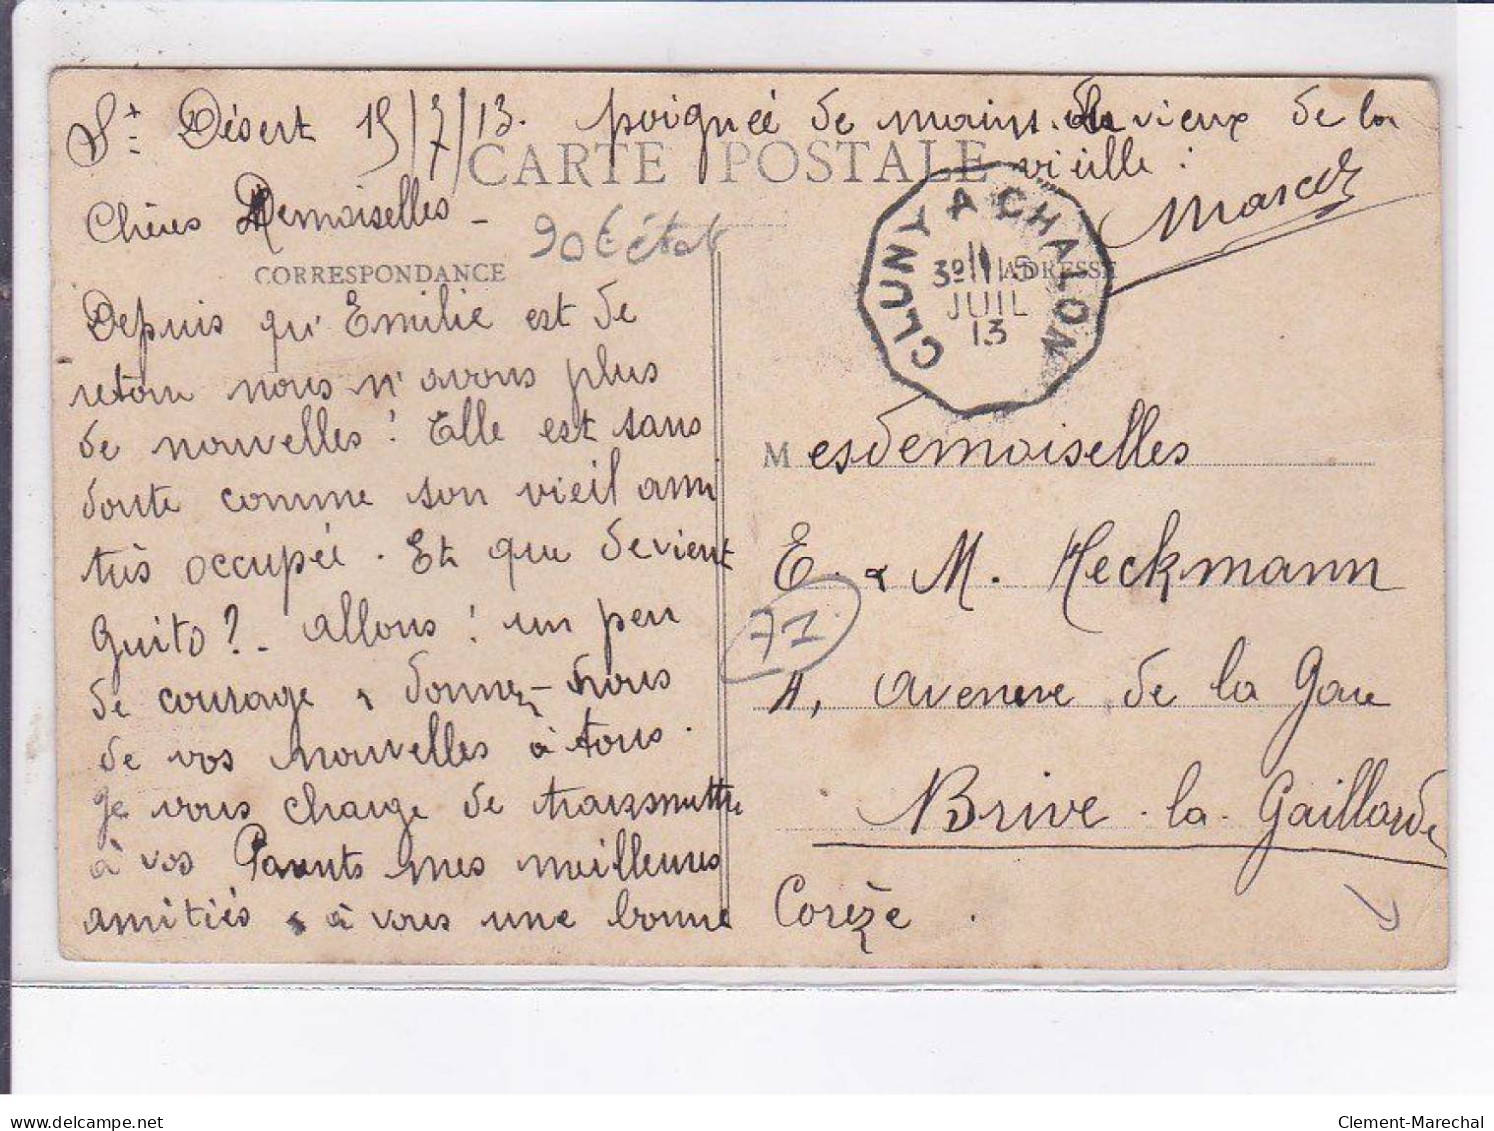 St Désert 15/7/13. poignée de mains des vieux de la
vieille :
Marcel
CARTE POSTALE
Chères Demoiselles -
90 € état
CORRESPONDANCE
ADRESSE
CLUNY A CHALON
3º 15
JUIL
13
Depuis qu' Emilie est de
retour nous n'avons plus
de nouvelles ! Elle est sans
doute comme son vieil ami
très occupée. Et que devient
Guito ? - allons ! un peu
de courage & donnez-nous
de vos nouvelles à tous.
Je vous charge de transmettre
à vos Parents mes meilleures
amitiés & à vous une bonne
Mesdemoiselles
E. & M. Heckmann
71
4, avenue de la Gare
Brive-la-Gaillarde
Corrèze.
delcampe.net
Clement-Marechal